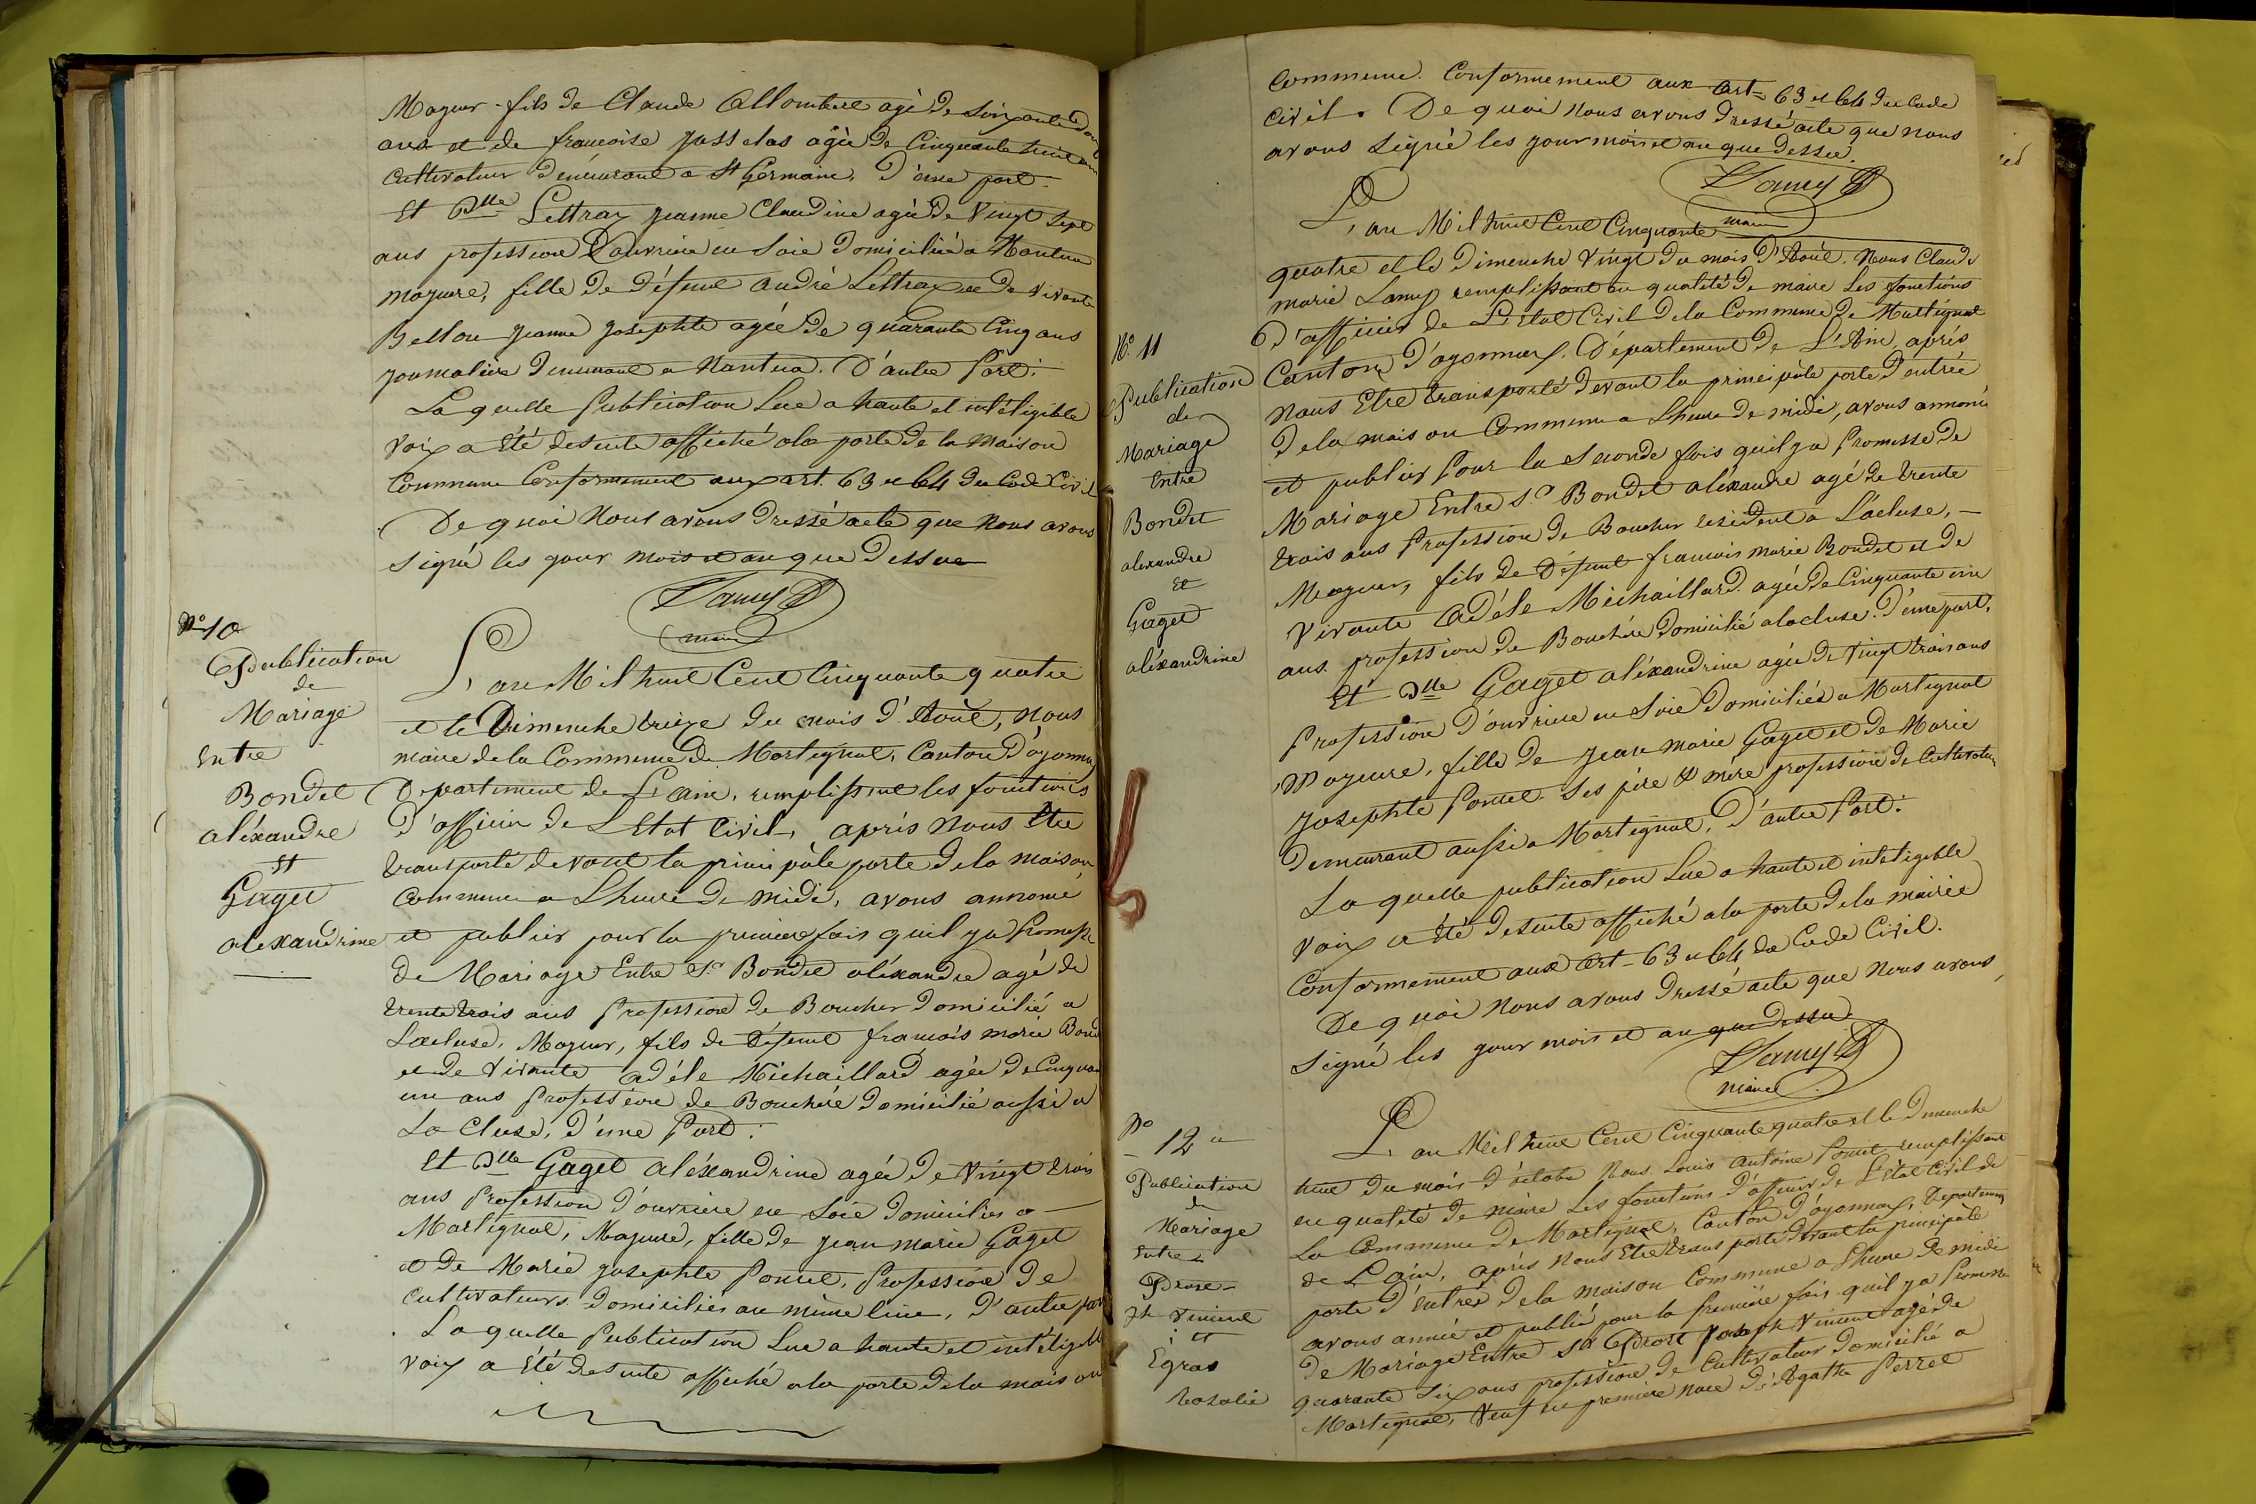 Majeur. fils de Claude Allombert agé de Soixante
ans et de françoise Josselas agée de Cinquante huit ans
Cultivateur demeurant a St Germain. D'une part.
Et Dlle Lettraz Jeanne Claudine agée de Vingt Sept
ans profession D'ouvriere en Soie domiciliée a Nantua
majeure, fille de défunt andré Lettraz et de vivante
Bellou Jeanne Josephte agée de quarante Cinq ans
Journaliere demeurant a Nantua. D'autre Part.
La quelle Publication Lue a haute et intéligible
Voix a été desuite affiché ala porte de la Maison
Commune Conformement aux art. 63 et 64 du Code Civil
De quoi Nous avons Dressé acte que Nous avons
Signé les jour mois et an que Dessus
Lamy
maire
No 10
Publication
de
Mariage
Entre
Bondet
aléxandre
Et
Gaget
aléxandrine
L'an Mil huit Cent Cinquante quatre
et le Dimenche treize du mois d'Août, Nous
maire de la Commune de Martignat, Canton D'oyonnax
Département de L'ain, remplissant les fonctions
d'officier de L'Etat Civil, aprés Nous Etre
transporté devant la principale porte dela maison
commune a L'heure de midi, avons annoncé
et publier pour la premiere fois quil ya Promesse
de Mariage Entre Sr Bondet aléxandre agé de
trente trois ans Profession de Boucher domicilié a
Lacluse, Majeur, fils de Défunt francois marie Bondet
et de Vivante adéle Michaillard agée de Cinquante
un ans Profession de Bouchére domicilié aussi a
La Cluse, d'une Part:
Et Dlle Gaget aléxandrine agée de Vingt trois
ans Profession d'ouvriere en Soie domiciliée a
Martignat, Majeure, fille de Jean marie Gaget
et de Marie Josephte Poncet, Profession de
Cultivateurs domiciliés au même lieu, d'autre part
La quelle Publication Lue a haute et intéligible
voix a été desuite affiché ala porte dela maison
commune. Conformement aux art. 63 et 64 du Code
Civil. De quoi Nous avons dressé acte que nous
avons Signé les jour mois et an que dessus.
Lamy
maire
No 11
Publication
de
Mariage
Entre
Bondet
alexandre
Et
Gaget
aléxandrine
L'an Mil huit Cent Cinquante
quatre et le Dimenche Vingt du mois d'Août. Nous Claude
marie Lamy remplissant en qualité de maire Les fonctions
D'officier de L'Etat Civil dela Commune de Martignat
Canton D'oyonnax. Département de L'Ain, aprés
Nous Etre transporté devant la principale porte d'entrée
dela maison Commune a L'heure de midi, avons annoncé
et publier Pour la Seconde fois quil ya Promesse de
Mariage Entre Sr Bondet aléxandre agé de trente
trois ans Profession de Boucher residant a Lacluse, —
Majeur, fils de Défunt francois marie Bondet et de
Vivante Adéle Michaillard agée de Cinquante un
ans profession de Bouchére domicilié alacluse. D'une part.
Et Dlle Gaget aléxandrine agée de Vingt trois ans
Profession d'ouvriere en Soie domiciliée a Martignat
Majeure, fille de Jean marie Gaget et de Marie
Josephte Poncet Ses pére & mére profession de Cultivateur
demeurant aussi a Martignat, D'autre Part:
La quelle publication Lue a haute et inteligible
voix a été desuite affiché ala porte dela mairie
Conformement aux art. 63 et 64 du Code Civil.
De quoi Nous avons dressé acte que Nous avons
Signé les jour mois et an que dessus
Lamy
maire
No 12
Publication
de
Mariage
Entre
Jh Vincent
et
Egras
Rosalie
L'an Mil huit Cent Cinquante quatre et le Dimenche
huit du mois d'octobre Nous Louis Antoine Poncet remplissant
en qualité de maire Les fonctions d'officier de L'Etat Civil de
La Commune de Martignat, Canton d'oyonnax, Departement
de L'ain, aprés Nous Etre transporté devant la principale
porte d'entrée dela maison Commune a L'heure de midi
avons annoncé et publié pour la Premiere fois quil ya Promesse
de Mariage Entre Sr Joseph Vincent agé de
quarante Six ans profession de Cultivateur domicilié a
Martignat, Veuf en premiere noce de Agathe Perret